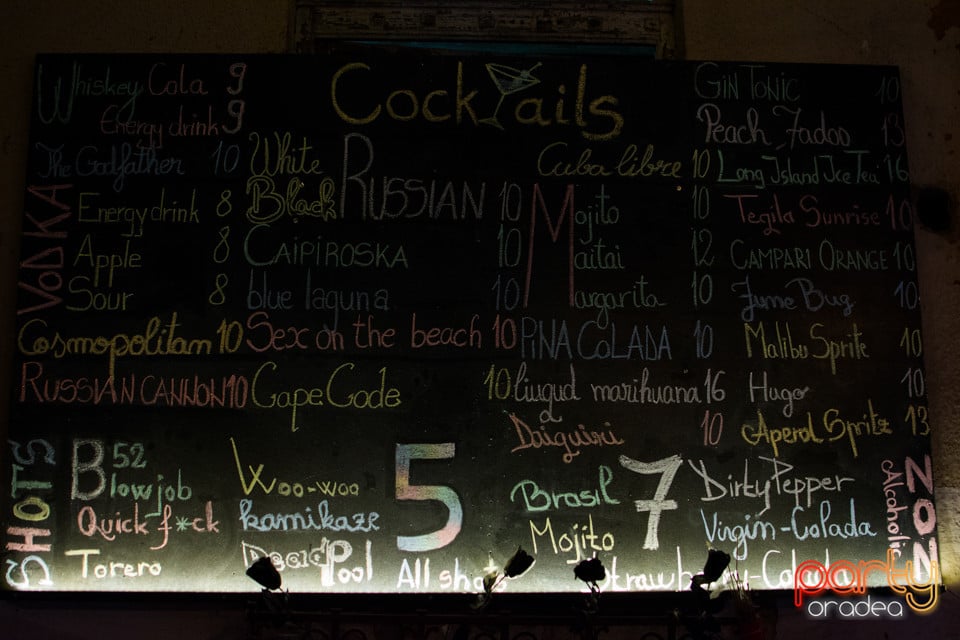 Cocktails
Whiskey Cola 9
Energy drink 9
The Godfather 10
VODKA
Energy drink 8
Apple 8
Sour 8
Cosmopolitan 10
RUSSIAN CANNON 10
White
Black
RUSSIAN 10
CAIPIROSKA 10
blue laguna 10
Sex on the beach 10
Cape Code 10
Cuba libre 10
Mojito 10
Maitai 12
Margarita 10
PiNA COLADA 10
liugud marihuana 16
Daiguiri 10
GIN TONIC 10
Peach Fados 13
Long Island Ice Tea 16
Tegila Sunrise 10
CAMPARI ORANGE 10
June Bug 10
Malibu Sprite 10
Hugo 10
Aperol Spritz 13
SHOTS
B52
Blowjob
Quick f*ck
Torero
Woo-woo
kamikaze
Deadd Pool
5
All
Brasil
Mojito
7
Dirty Pepper
Virgin-Colada
NON
Alcoholic
party
oradea